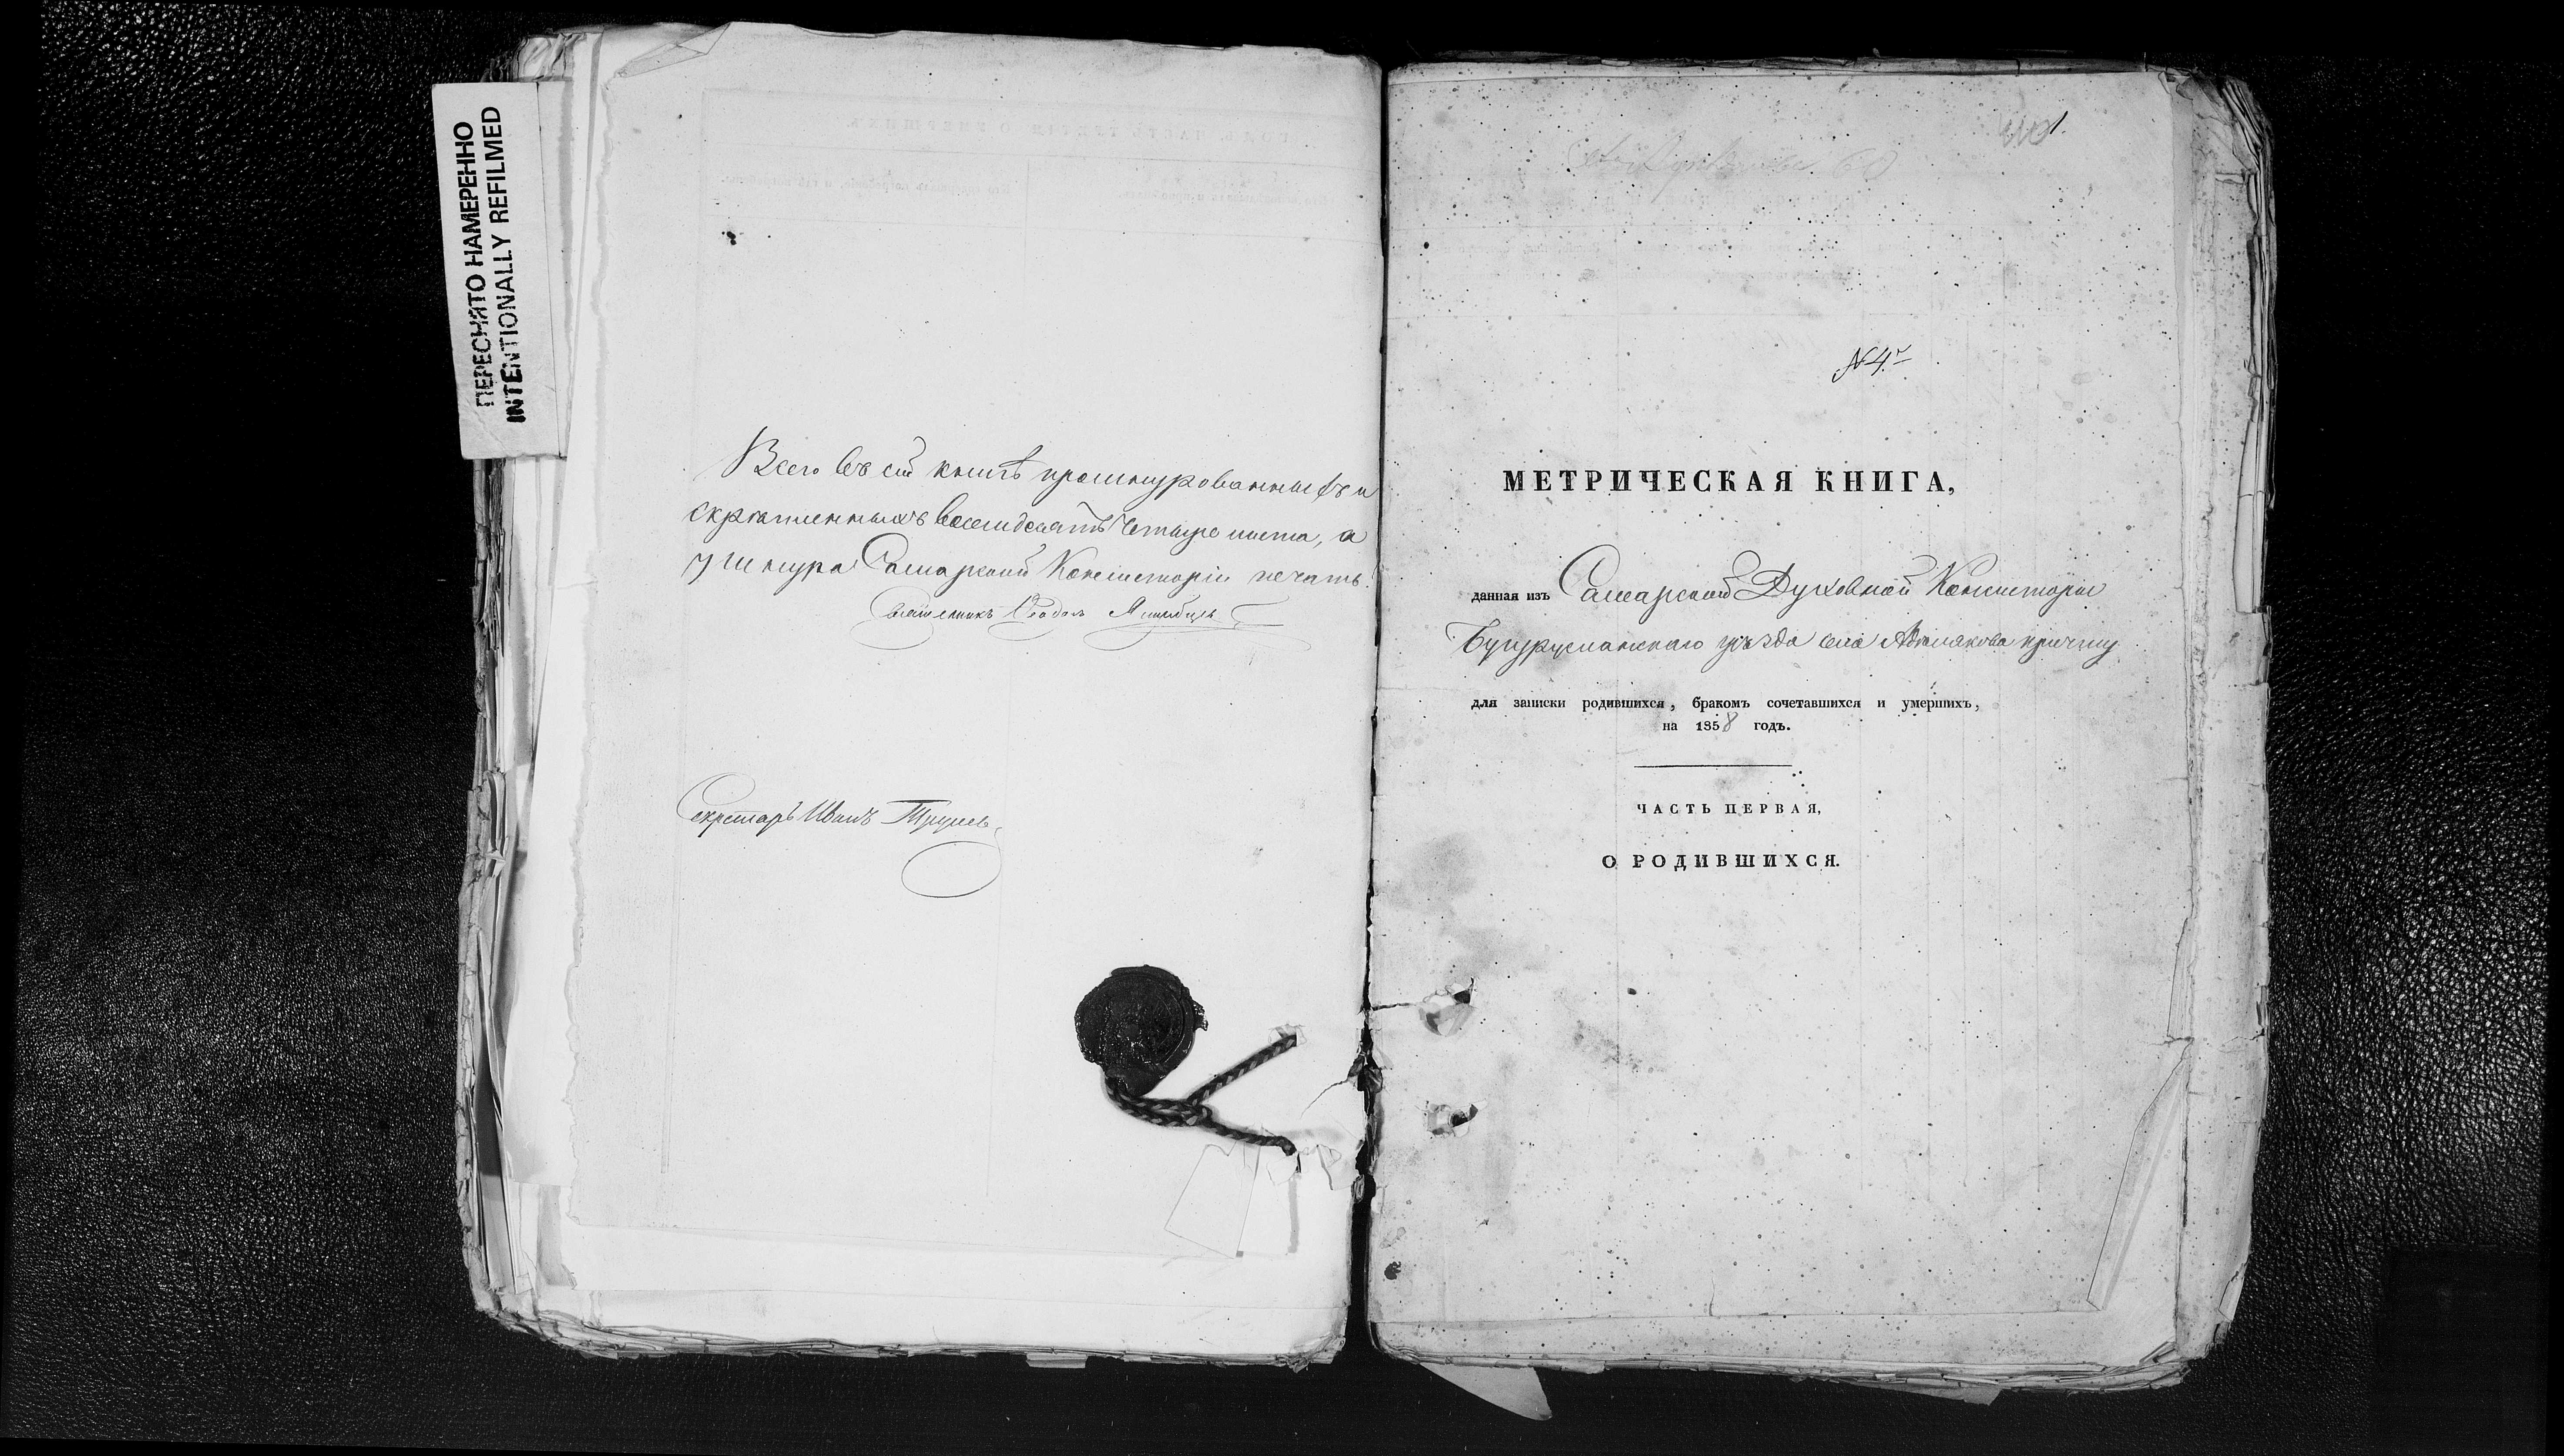 ПЕРЕСНЯТО НАМЕРЕННО
INTENTIONALLY REFILMED
Всего въ сей книгѣ прошнурованныхъ и
скрѣпленныхъ восемдесятъ четыре листа, а
у шнура Самарской Консисторіи печать.
Священникъ
Секретарь Иванъ
1.
№ 4.й
МЕТРИЧЕСКАЯ КНИГА,
данная изъ Самарской Духовной Консисторіи
Бугурусланскаго уѣзда села Абдикѣева причту
для записки родившихся, бракомъ сочетавшихся и умершихъ,
на 1858 годъ.
ЧАСТЬ ПЕРВАЯ,
О РОДИВШИХСЯ.